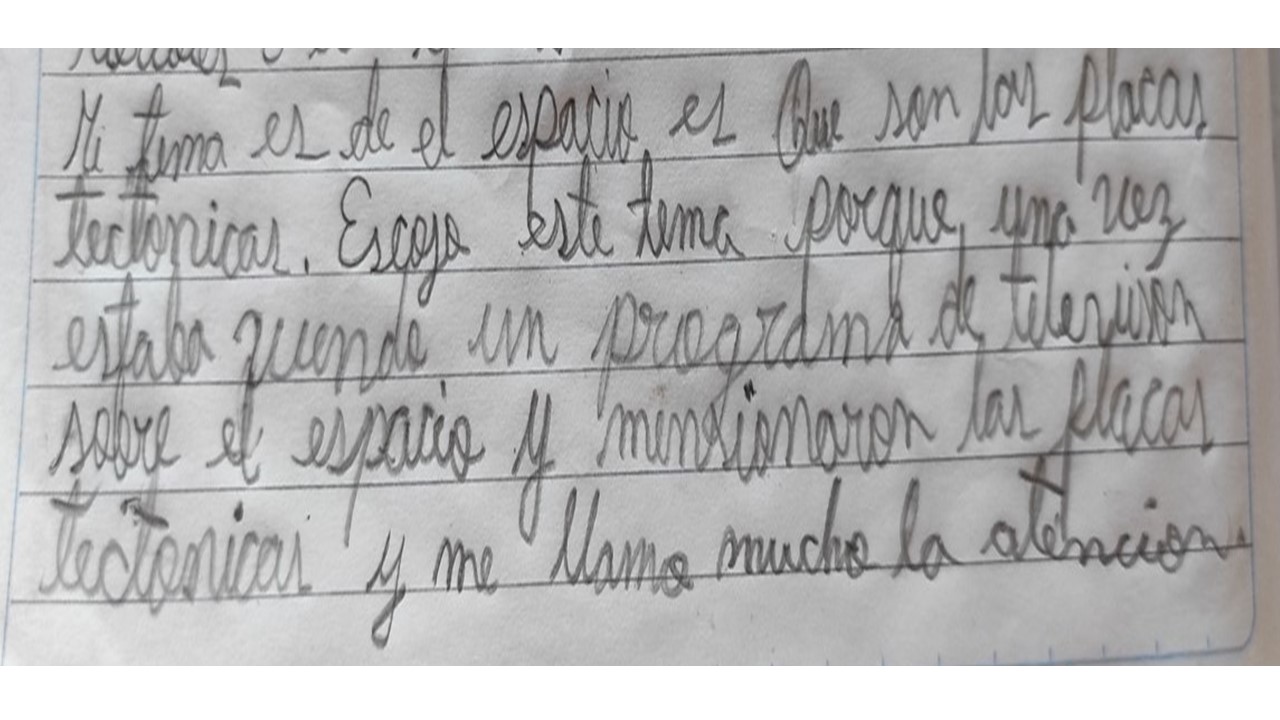 Mi tema es de el espacio es Que son las placas
tectonicas. Escojo este tema porque una vez
estaba viendo un programa de television
sobre el espacio y mensionaron las placas
tectonicas y me llamo mucho la atencion.